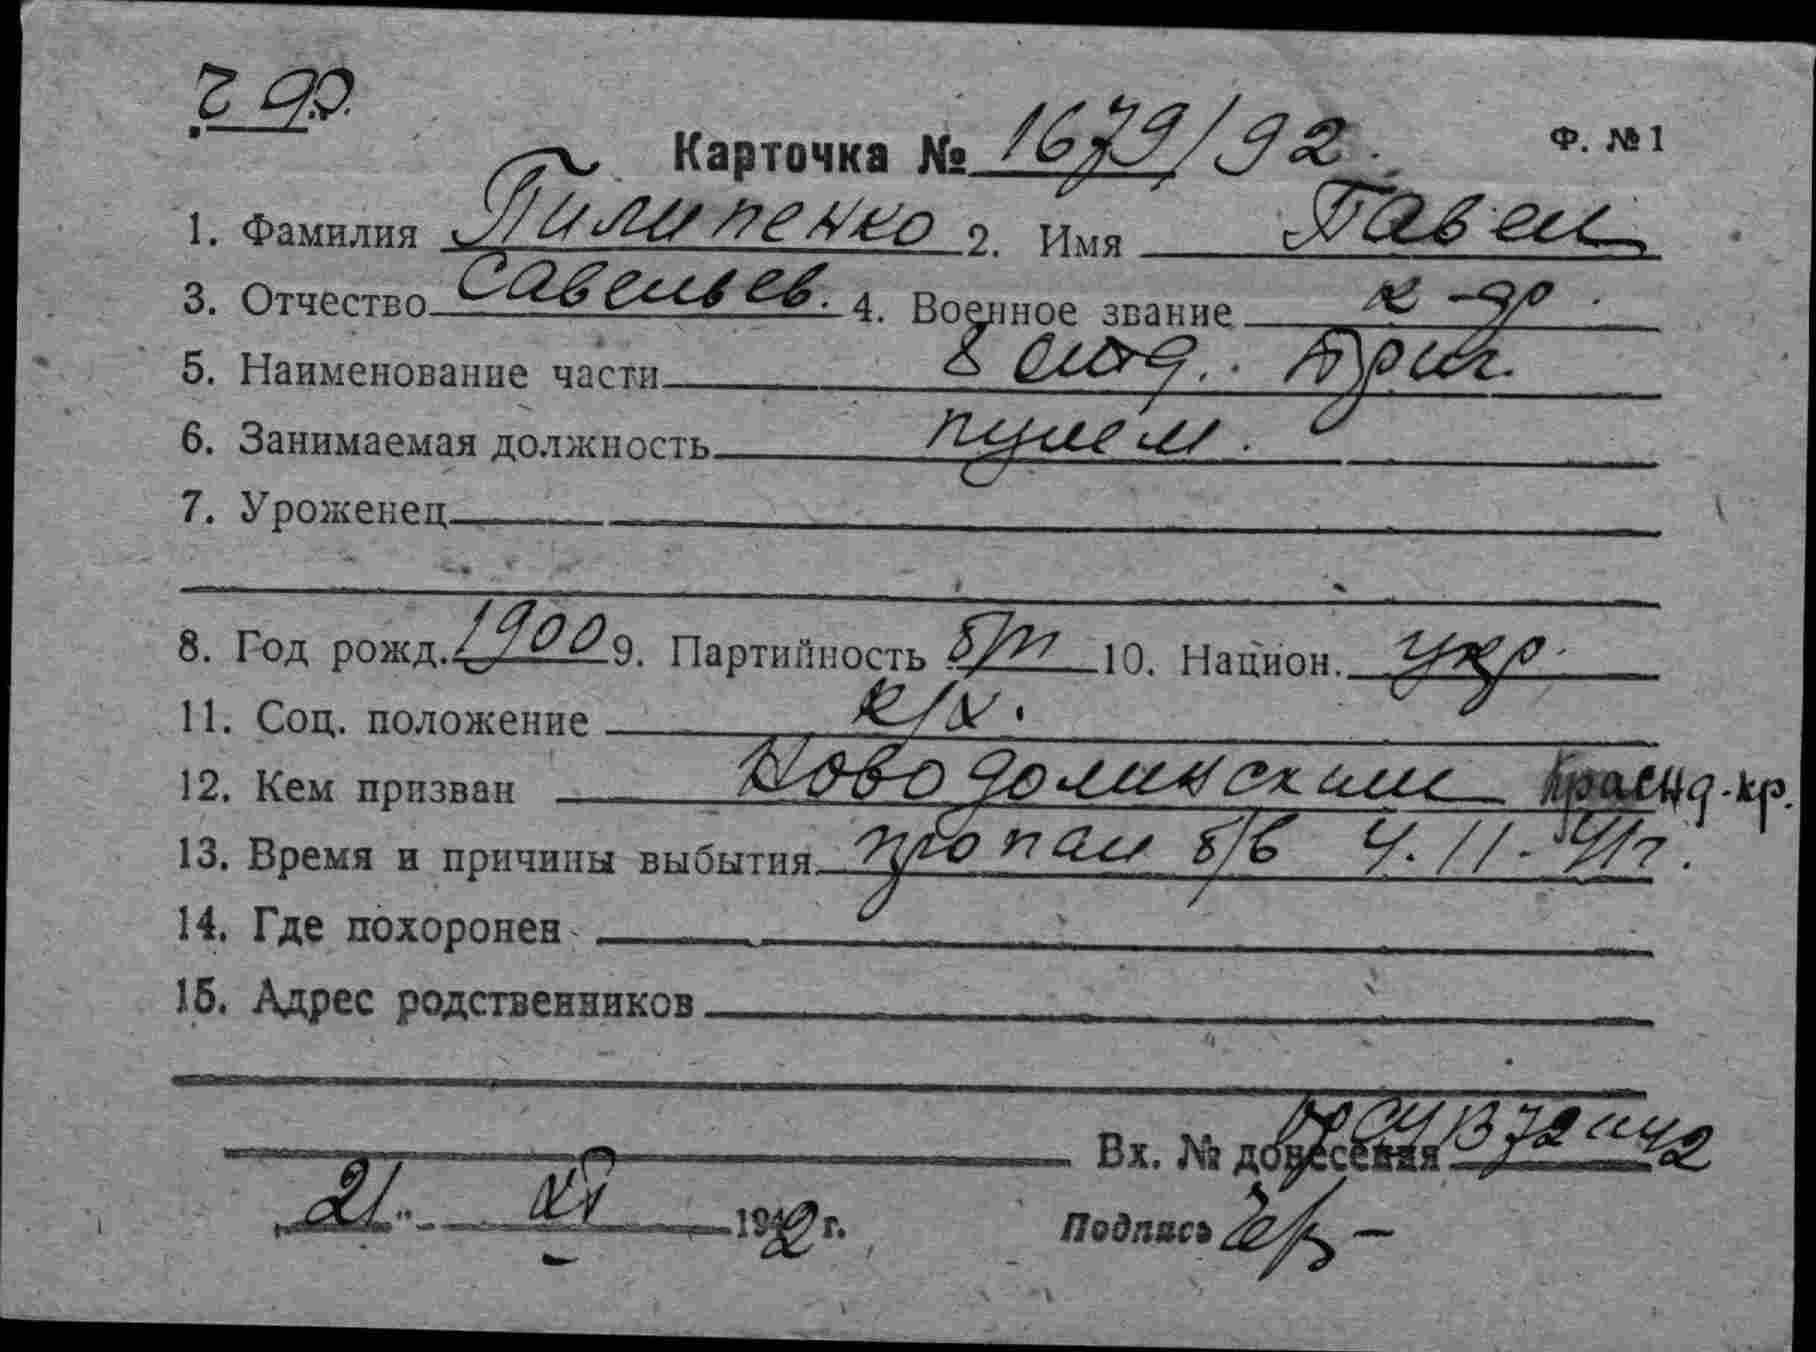 Карточка № 1679/92. Ф. № 1
1. Фамилия Пилипенко 2. Имя Павел
3. Отчество Савельев. 4. Военное звание к-др.
5. Наименование части 8 отд. бриг.
6. Занимаемая должность пулем.
7. Уроженец
8. Год рожд. 1900 9. Партийность б/п 10. Национ. укр.
11. Соц. положение к/х.
12. Кем призван Новодолинским Краснд. кр.
13. Время и причины выбытия пропал б/в 4.11.41г.
14. Где похоронен
15. Адрес родственников
Вх. № донесения
21 1942 г. Подпись